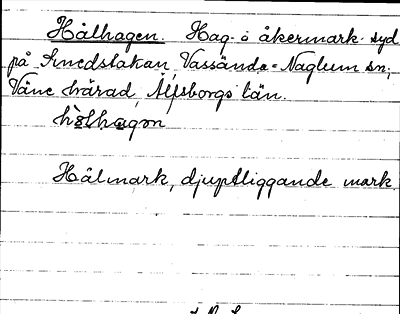 Hålhagen. Hag- o åkermark syd
på Smedstakan, Vassända-Naglum sn,
Väne härad, Älfsborgs län.
hòlhagǝn
Hålmark, djuptliggande mark